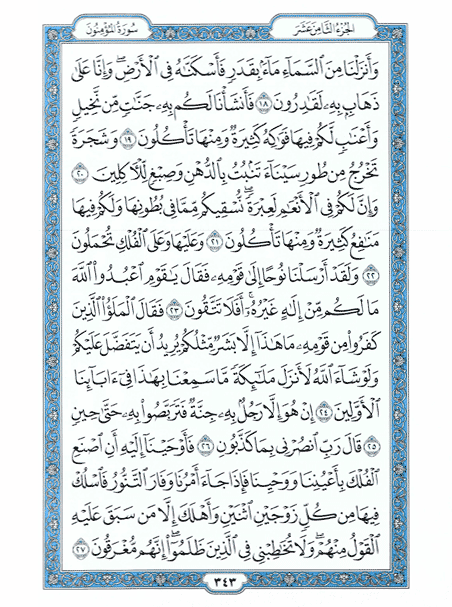 سُورَةُ المُؤْمِنُون
الجُزْءُ الثَّامِنَ عَشَرَ
وَأَنزَلْنَا مِنَ ٱلسَّمَآءِ مَآءًۢ بِقَدَرٍ فَأَسْكَنَّٰهُ فِى ٱلْأَرْضِۖ وَإِنَّا عَلَىٰ
ذَهَابٍۭ بِهِۦ لَقَٰدِرُونَ ١٨ فَأَنشَأْنَا لَكُم بِهِۦ جَنَّٰتٍ مِّن نَّخِيلٍ
وَأَعْنَٰبٍ لَّكُمْ فِيهَا فَوَٰكِهُ كَثِيرَةٌ وَمِنْهَا تَأْكُلُونَ ١٩ وَشَجَرَةً
تَخْرُجُ مِن طُورِ سَيْنَآءَ تَنۢبُتُ بِٱلدُّهْنِ وَصِبْغٍ لِّلْـَٔاكِلِينَ ٢٠
وَإِنَّ لَكُمْ فِى ٱلْأَنْعَٰمِ لَعِبْرَةًۖ نُّسْقِيكُم مِّمَّا فِى بُطُونِهَا وَلَكُمْ فِيهَا
مَنَٰفِعُ كَثِيرَةٌ وَمِنْهَا تَأْكُلُونَ ٢١ وَعَلَيْهَا وَعَلَى ٱلْفُلْكِ تُحْمَلُونَ
٢٢ وَلَقَدْ أَرْسَلْنَا نُوحًا إِلَىٰ قَوْمِهِۦ فَقَالَ يَٰقَوْمِ ٱعْبُدُوا۟ ٱللَّهَ
مَا لَكُم مِّنْ إِلَٰهٍ غَيْرُهُۥٓۖ أَفَلَا تَتَّقُونَ ٢٣ فَقَالَ ٱلْمَلَؤُا۟ ٱلَّذِينَ
كَفَرُوا۟ مِن قَوْمِهِۦ مَا هَٰذَآ إِلَّا بَشَرٌ مِّثْلُكُمْ يُرِيدُ أَن يَتَفَضَّلَ عَلَيْكُمْ
وَلَوْ شَآءَ ٱللَّهُ لَأَنزَلَ مَلَٰٓئِكَةً مَّا سَمِعْنَا بِهَٰذَا فِىٓ ءَابَآئِنَا
ٱلْأَوَّلِينَ ٢٤ إِنْ هُوَ إِلَّا رَجُلٌۢ بِهِۦ جِنَّةٌ فَتَرَبَّصُوا۟ بِهِۦ حَتَّىٰ حِينٍ
٢٥ قَالَ رَبِّ ٱنصُرْنِى بِمَا كَذَّبُونِ ٢٦ فَأَوْحَيْنَآ إِلَيْهِ أَنِ ٱصْنَعِ
ٱلْفُلْكَ بِأَعْيُنِنَا وَوَحْيِنَا فَإِذَا جَآءَ أَمْرُنَا وَفَارَ ٱلتَّنُّورُ فَٱسْلُكْ
فِيهَا مِن كُلٍّ زَوْجَيْنِ ٱثْنَيْنِ وَأَهْلَكَ إِلَّا مَن سَبَقَ عَلَيْهِ
ٱلْقَوْلُ مِنْهُمْۖ وَلَا تُخَٰطِبْنِى فِى ٱلَّذِينَ ظَلَمُوٓا۟ۖ إِنَّهُم مُّغْرَقُونَ ٢٧
٣٤٣